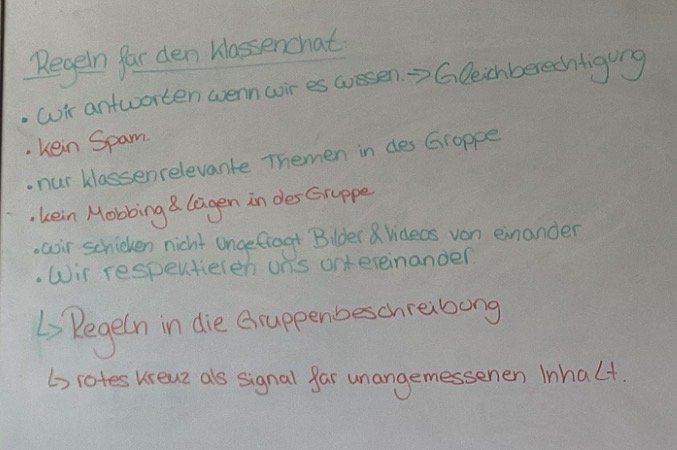 Regeln für den Klassenchat:
• wir antworten wenn wir es wissen. → Gleichberechtigung
• kein Spam.
• nur klassenrelevante Themen in der Gruppe
• kein Mobbing & Lügen in der Gruppe
• wir schicken nicht ungefragt Bilder & Videos von einander
• Wir respektieren uns untereinander
↳ Regeln in die Gruppenbeschreibung
↳ rotes Kreuz als signal für unangemessenen Inhalt.